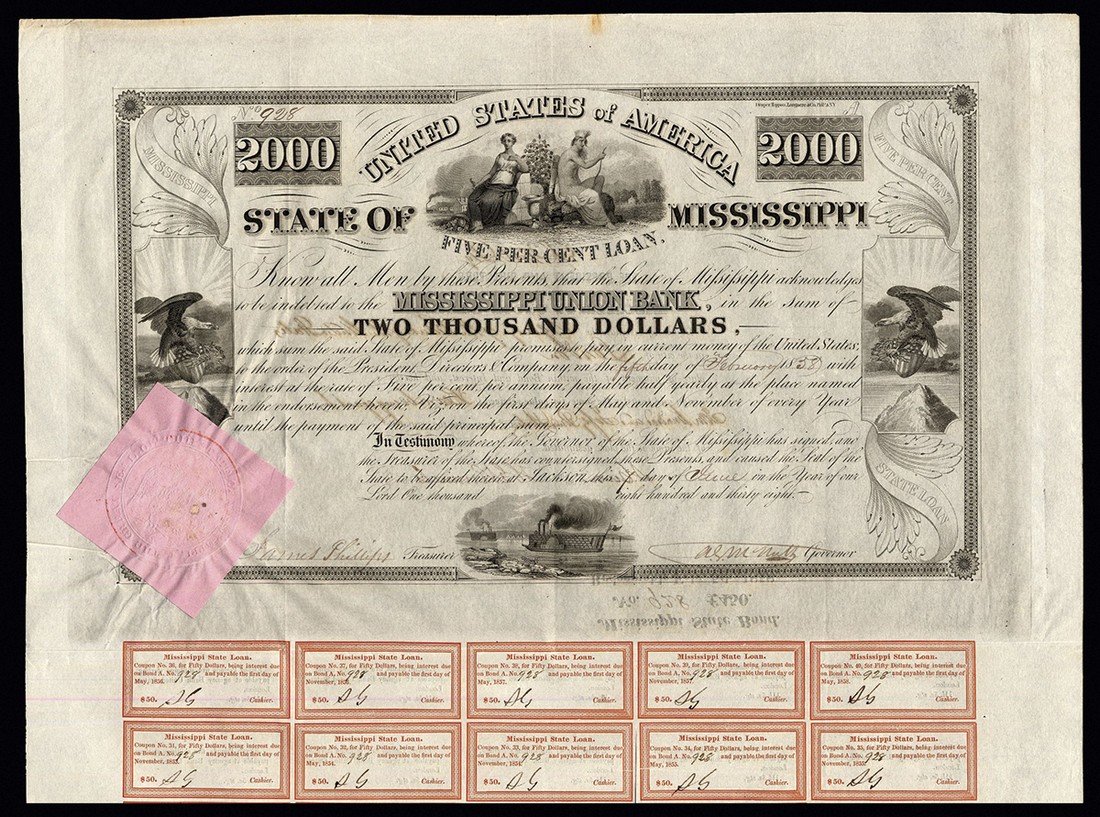 No 928
Draper, Toppan, Longacre & Co. Phila. & N.Y.
A
2000
UNITED STATES of AMERICA
2000
MISSISSIPPI
FIVE PER CENT
STATE OF MISSISSIPPI
FIVE PER CENT LOAN.
Know all Men by these Presents, that the State of Mississippi acknowledges
to be indebted to the MISSISSIPPI UNION BANK, in the sum of
TWO THOUSAND DOLLARS,
which sum the said State of Mississippi promises to pay in current money of the United States,
to the order of the President Directors & Company, on the fifth day of February 1858 with
interest at the rate of Five per cent per annum, payable half yearly at the place named
in the endorsement hereto. Viz, on the first days of May and November of every Year
until the payment of the said principal sum
In Testimony whereof, the Governor of the State of Mississippi has signed, and
the Treasurer of the State has countersigned these Presents, and caused the Seal of the
State to be affixed thereto, at Jackson, this day of June in the Year of our
Lord One thousand eight hundred and thirty eight.
STATE LOAN
James Phillips Treasurer
A G McNutt Governor
No. 928 £450.
Mississippi State Bond.
Mississippi State Loan.
Coupon No. 36, for Fifty Dollars, being interest due
on Bond A. No. 928 and payable the first day of
May, 1856.
$50. SG Cashier.
Mississippi State Loan.
Coupon No. 37, for Fifty Dollars, being interest due
on Bond A. No. 928 and payable the first day of
November, 1856.
$50. SG Cashier.
Mississippi State Loan.
Coupon No. 38, for Fifty Dollars, being interest due
on Bond A. No. 928 and payable the first day of
May, 1857.
$50. SG Cashier.
Mississippi State Loan.
Coupon No. 39, for Fifty Dollars, being interest due
on Bond A. No. 928 and payable the first day of
November, 1857.
$50. SG Cashier.
Mississippi State Loan.
Coupon No. 40, for Fifty Dollars, being interest due
on Bond A. No. 928 and payable the first day of
May, 1858.
$50. SG Cashier.
Mississippi State Loan.
Coupon No. 31, for Fifty Dollars, being interest due
on Bond A. No. 928 and payable the first day of
November, 1853.
$50. SG Cashier.
Mississippi State Loan.
Coupon No. 32, for Fifty Dollars, being interest due
on Bond A. No. 928 and payable the first day of
May, 1854.
$50. SG Cashier.
Mississippi State Loan.
Coupon No. 33, for Fifty Dollars, being interest due
on Bond A. No. 928 and payable the first day of
November, 1854.
$50. SG Cashier.
Mississippi State Loan.
Coupon No. 34, for Fifty Dollars, being interest due
on Bond A. No. 928 and payable the first day of
May, 1855.
$50. SG Cashier.
Mississippi State Loan.
Coupon No. 35, for Fifty Dollars, being interest due
on Bond A. No. 928 and payable the first day of
November, 1855.
$50. SG Cashier.